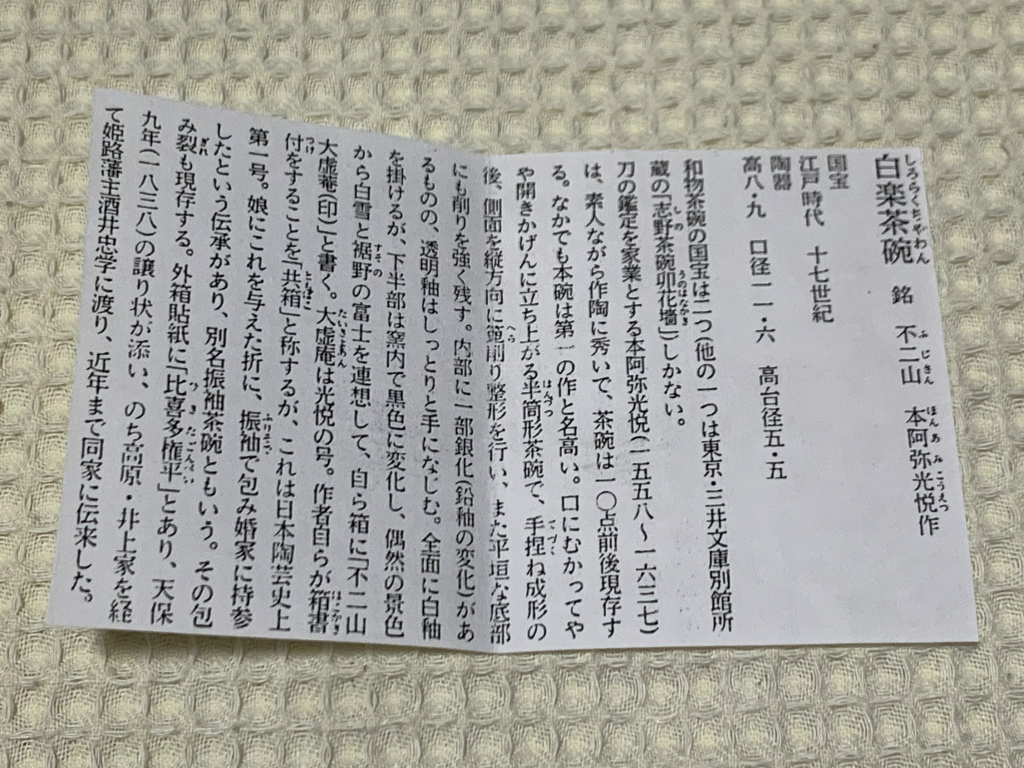 白楽茶碗　銘　不二山　本阿弥光悦作
しろらくちゃわん　ふじさん　ほんあみこうえつ
国宝
江戸時代　十七世紀
陶器
高八・九　口径一一・六　高台径五・五
和物茶碗の国宝は二つ(他の一つは東京・三井文庫別館所
蔵の「志野茶碗卯花墻」)しかない。
しの　うのはながき
刀の鑑定を家業とする本阿弥光悦(一五五八〜一六三七)
は、素人ながら作陶に秀いで、茶碗は一〇点前後現存す
る。なかでも本碗は第一の作と名高い。口にむかってや
や開きかげんに立ち上がる半筒形茶碗で、手捏ね成形の
はんづつ　てづく
後、側面を縦方向に箆削り整形を行い、また平垣な底部
へら
にも削りを強く残す。内部に一部銀化(鉛釉の変化)があ
るものの、透明釉はしっとりと手になじむ。全面に白釉
を掛けるが、下半部は窯内で黒色に変化し、偶然の景色
から白雪と裾野の富士を連想して、自ら箱に「不二山
すその
大虚庵(印)」と書く。大虚庵は光悦の号。作者自らが箱書
たいきょあん　はこがき
付をすることを「共箱」と称するが、これは日本陶芸史上
つけ　ともばこ
第一号。娘にこれを与えた折に、振袖で包み婚家に持参
ふりそで
したという伝承があり、別名振袖茶碗ともいう。その包
み裂も現存する。外箱貼紙に「比喜多権平」とあり、天保
ぎれ　ひきたごんべい
九年(一八三八)の譲り状が添い、のち高原・井上家を経
て姫路藩主酒井忠学に渡り、近年まで同家に伝来した。